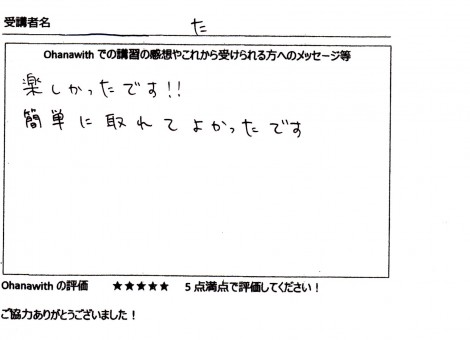 受講者名 た
Ohanawith での講習の感想やこれから受けられる方へのメッセージ等
楽しかったです!!
簡単に取れてよかったです
Ohanawith の評価 ★★★★★ 5点満点で評価してください！
ご協力ありがとうございました！